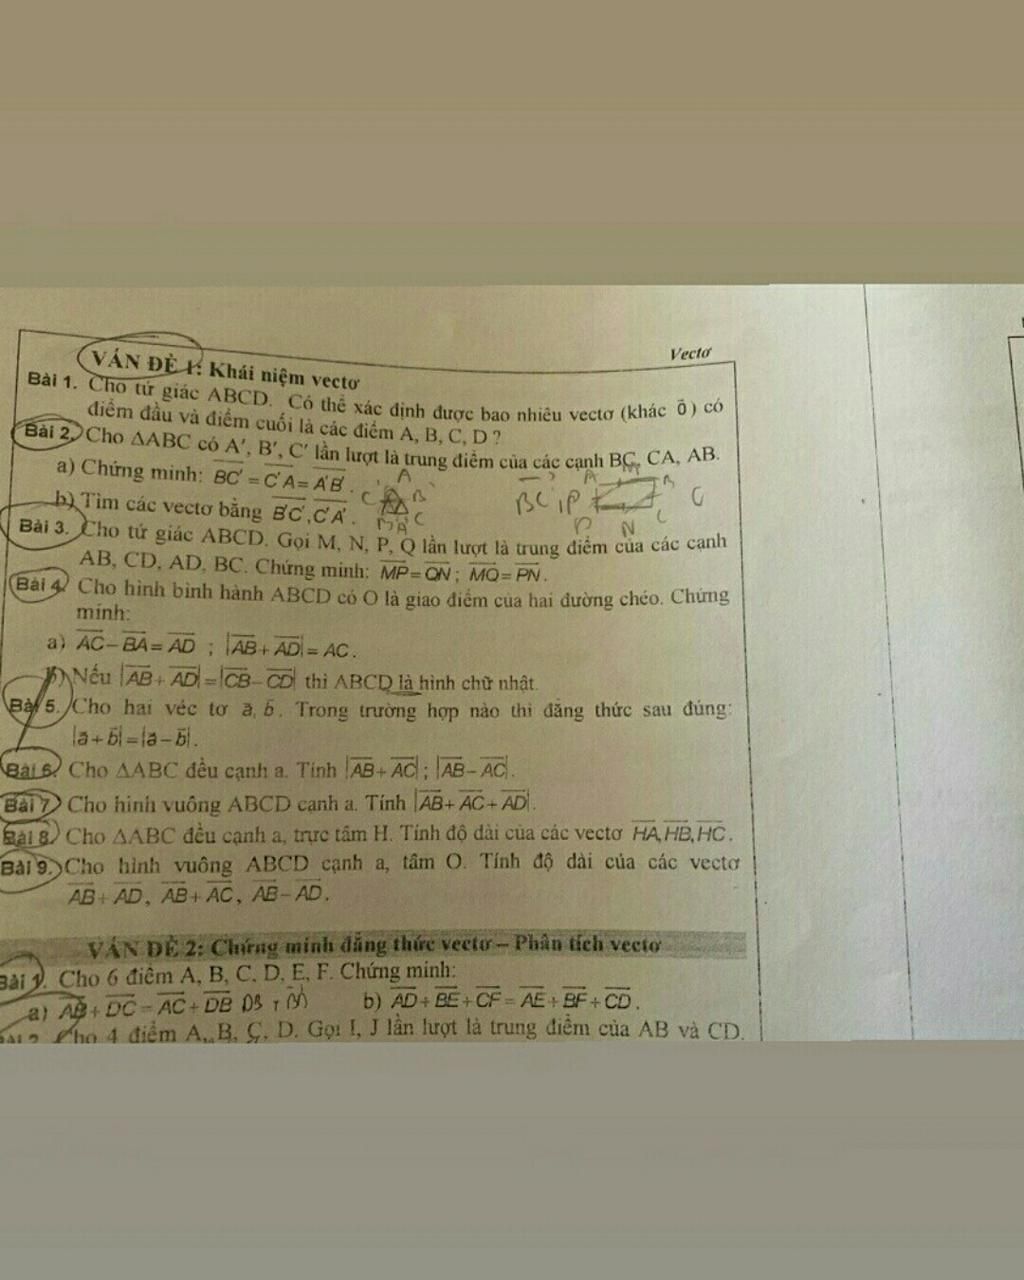 Vectơ
VẤN ĐỀ 1: Khái niệm vectơ
Bài 1. Cho tứ giác ABCD. Có thể xác định được bao nhiêu vectơ (khác 0⃗) có
điểm đầu và điểm cuối là các điểm A, B, C, D ?
Bài 2. Cho ΔABC có A′, B′, C′ lần lượt là trung điểm của các cạnh BC, CA, AB.
a) Chứng minh: BC′ = C′A = A′B′.
b) Tìm các vectơ bằng B′C′, C′A′.
Bài 3. Cho tứ giác ABCD. Gọi M, N, P, Q lần lượt là trung điểm của các cạnh
AB, CD, AD, BC. Chứng minh: MP = QN ; MQ = PN.
Bài 4. Cho hình bình hành ABCD có O là giao điểm của hai đường chéo. Chứng
minh:
a) AC − BA = AD ; |AB + AD| = AC.
b) Nếu |AB + AD| = |CB − CD| thì ABCD là hình chữ nhật.
Bài 5. Cho hai véc tơ a⃗, b⃗. Trong trường hợp nào thì đẳng thức sau đúng:
|a⃗ + b⃗| = |a⃗ − b⃗|.
Bài 6. Cho ΔABC đều cạnh a. Tính |AB + AC| ; |AB − AC|.
Bài 7. Cho hình vuông ABCD cạnh a. Tính |AB + AC + AD|.
Bài 8. Cho ΔABC đều cạnh a, trực tâm H. Tính độ dài của các vectơ HA, HB, HC.
Bài 9. Cho hình vuông ABCD cạnh a, tâm O. Tính độ dài của các vectơ
AB + AD, AB + AC, AB − AD.
VẤN ĐỀ 2: Chứng minh đẳng thức vectơ – Phân tích vectơ
Bài 1. Cho 6 điểm A, B, C, D, E, F. Chứng minh:
a) AB + DC = AC + DB b) AD + BE + CF = AE + BF + CD.
Cho 4 điểm A, B, C, D. Gọi I, J lần lượt là trung điểm của AB và CD.